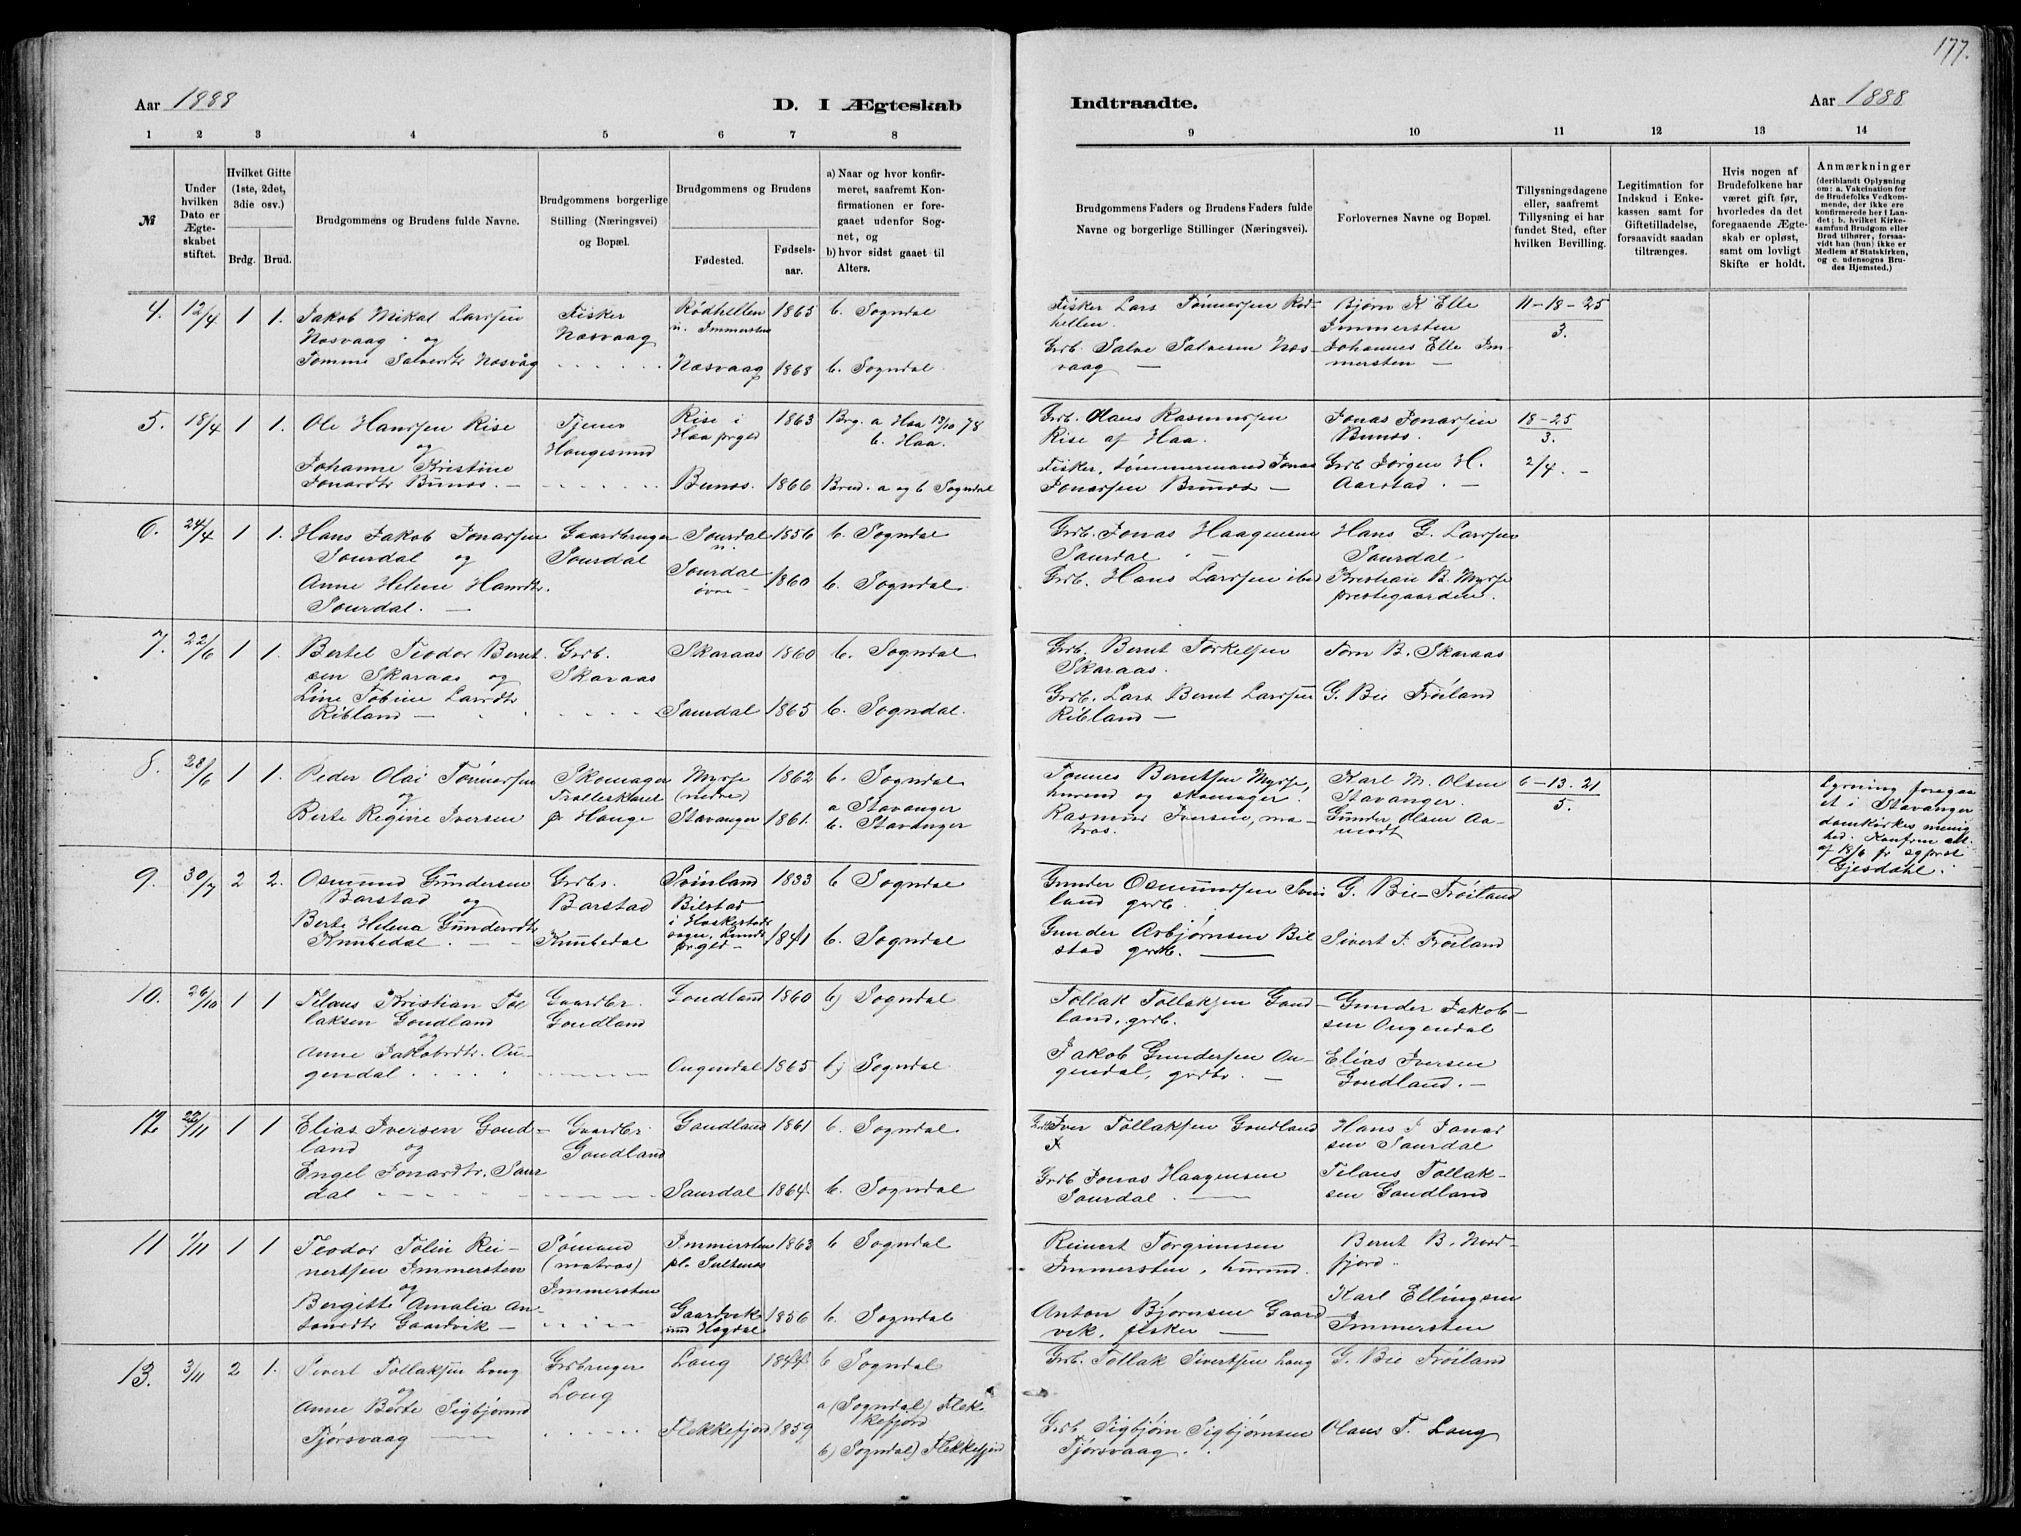 177.
Aar 1888
D. I Ægteskab
Indtraadte.
Aar 1888
1 2 3 4 5 6 7 8 9 10 11 12 13 14
№
Under hvilken Dato er Ægteskabet stiftet.
Hvilket Gifte (1ste, 2det, 3die osv.)
Brdg. Brud.
Brudgommens og Brudens fulde Navne.
Brudgommens borgerlige Stilling (Næringsvei) og Bopæl.
Brudgommens og Brudens
Fødested.
Fødsels-aar.
a) Naar og hvor konfirmeret, saafremt Konfirmationen er foregaaet udenfor Sognet, og
b) hvor sidst gaaet til Alters.
Brudgommens Faders og Brudens Faders fulde Navne og borgerlige Stillinger (Næringsvei).
Forlovernes Navne og Bopæl.
Tillysningsdagene eller, saafremt Tillysning ei har fundet Sted, efter hvilken Bevilling.
Legitimation for Indskud i Enkekassen samt for Giftetilladelse, forsaavidt saadan tiltrænges.
Hvis nogen af Brudefolkene har været gift før, hvorledes da det foregaaende Ægteskab er opløst, samt om lovligt Skifte er holdt.
Anmærkninger
(deriblandt Oplysning om: a. Vakcination for de Brudefolks Vedkommende, der ikke ere konfirmerede her i Landet; b. hvilket Kirkesamfund Brudgom eller Brud tilhører, forsaavidt han (hun) ikke er Medlem af Statskirken, og c. udensogns Brudes Hjemsted.)
4. 12/4 1 1. Jakob Mikal Larssen
Nesvaag og
Tomine Salvesdtr Nesvåg
Fisker
Nesvaag
Rødhellen
n. Immersten
1865 b. Sogndal
Nesvaag 1868 b. Sogndal.
Fisker Lars Tønnessen Rødhellen
Grb. Salve Salvesen Nesvaag —
Bjørn K Elle
Immersten
Johannes Elle Immersten —
11-18-25
3.
5. 18/4 1 1. Ole Hanssen Rise
og
Johanne Kristine
Jonasdtr Bunes. —
Tjener
Haugesund
Rise i
Haa prgld
1863 Brg. a Haa 13/10 78
b. Haa.
Bunes. 1866 Brud. a og b Sogndal
Grb. Hans Rasmussen
Rise af Haa.
Fisker, tømmermand Jonas
Jonassen Bunes —
Jonas Jonassen
Bunes.
Grb Jørgen H.
Aarstad. —
18-25
3.
2/4. -
6. 24/4 1 1. Hans Jakob Jonassen
Sourdal og
Anne Helene Hansdtr.
Sourdal. —
Gaardbruger
Sourdal
Sourdal
n.
1856 b. Sogndal
Sourdal
øvre
1860 b. Sogndal
Grb. Jonas Haagensen
Saurdal
Grb. Hans Larssen ibd
Hans G. Larssen
Saurdal
Kristian B. Mysse
prestegaarden.
7. 22/6 1 1. Bertel Teodor Berntsen Skaraas og
Line Tobine Larsdtr
Ribland —
Grb.
Skaraas
Skaraas 1860 b. Sogndal
Saurdal 1865 b. Sogndal.
Grb. Bernt Torkelsen
Skaraas.
Grb. Lars Bernt Larssen
Ribland —
Tørn B. Skaraas
G. Bie Frøiland
8. 28/6 1 1. Peder Olai Tønnessen
og
Berte Regine Iversen
Skomager
Trolleskaret
p. Hauge
Mysse
(nedre)
1862 b. Sogndal
Stavanger 1861. a Stavanger
b. Stavanger
Tønnes Berntsen Mysse,
husmd og skomager.
Rasmus Iversen, matros.
Karl M. Olsen
Stavanger.
Gunder Olsen Aamodt
6-13. 21
5.
Lysning foregaaet i Stavanger
domkirkes menighed. Konfrm att.
af 18/6 fr sgprst
Gjesdahl.
9. 30/7 2 2. Osmund Gundersen
Barstad og
Berte Helena Gundersdtr
Knubedal —
Grdbr.
Barstad
Knubedal
Svinland 1833 b Sogndal
Bilstad
i Heskestad
sogn, Lunde
prgld —
1841 b. Sogndal
Gunder Osmundsen Svinland grdb.
Gunder Asbjørnsen Bilstad grdb. —
G. Bie-Frøiland
Sivert J. Frøiland
10. 26/10 1 1 Tilaus Kristian Tollaksen Goudland
og
Anne Jakobsdtr. Ougendal
Gaardbr.
Goudland
Goudland 1860 b) Sogndal
Ougendal 1865 b) Sogndal
Tollak Tollaksen Goudland, grdb.
Jakob Gundersen Ougendal, grdbr. —
Gunder Jakobsen Ougendal
Elias Iversen
Goudland. —
12 22/11 1 1 Elias Iversen Goudland og
Engel Jonasdtr. Saurdal
Gaardbr.
Goudland
Goudland 1861 b. Sogndal
Saurdal 1864 b. Sogndal
Iver Tollaksen Goudland
Grdb Jonas Haagensen
Sourdal —
Hans J Jonassen Saurdal
Tilaus Tollaksen Goudland
11 1/11 1 1 Teodor Tolin Reinertsen Immersten
og
Bergitte Amalia Antonsdtr Gaardvik —
Sømand
(matros)
Immersten
Immersten
pl. Sultenes
1863 b Sogndal
Gaardvik
und Høgdal
1856 b. Sogndal
Reinert Torgrimsen
Immersten, husmd.
Anton Bjørnsen Gaardvik, fisker —
Bernt B. Nordfjord.
Karl Ellingsen
Immersten
13. 3/11 2 1. Sivert Tollaksen Loug
og
Anne Berte Sigbjørnsd
Tjørsvaag —
Grdbruger
Loug
Loug 1844 b Sogndal
Flekkefjord 1859 a (Sogndal) Flekkefjord
b) Sogndal) Flekkefjord
Grb. Tollak Sivertsen Loug
Grb Sigbjørn Sigbjørnsen
Tjørsvaag
G. Bie Frøiland
Olaus T. Loug